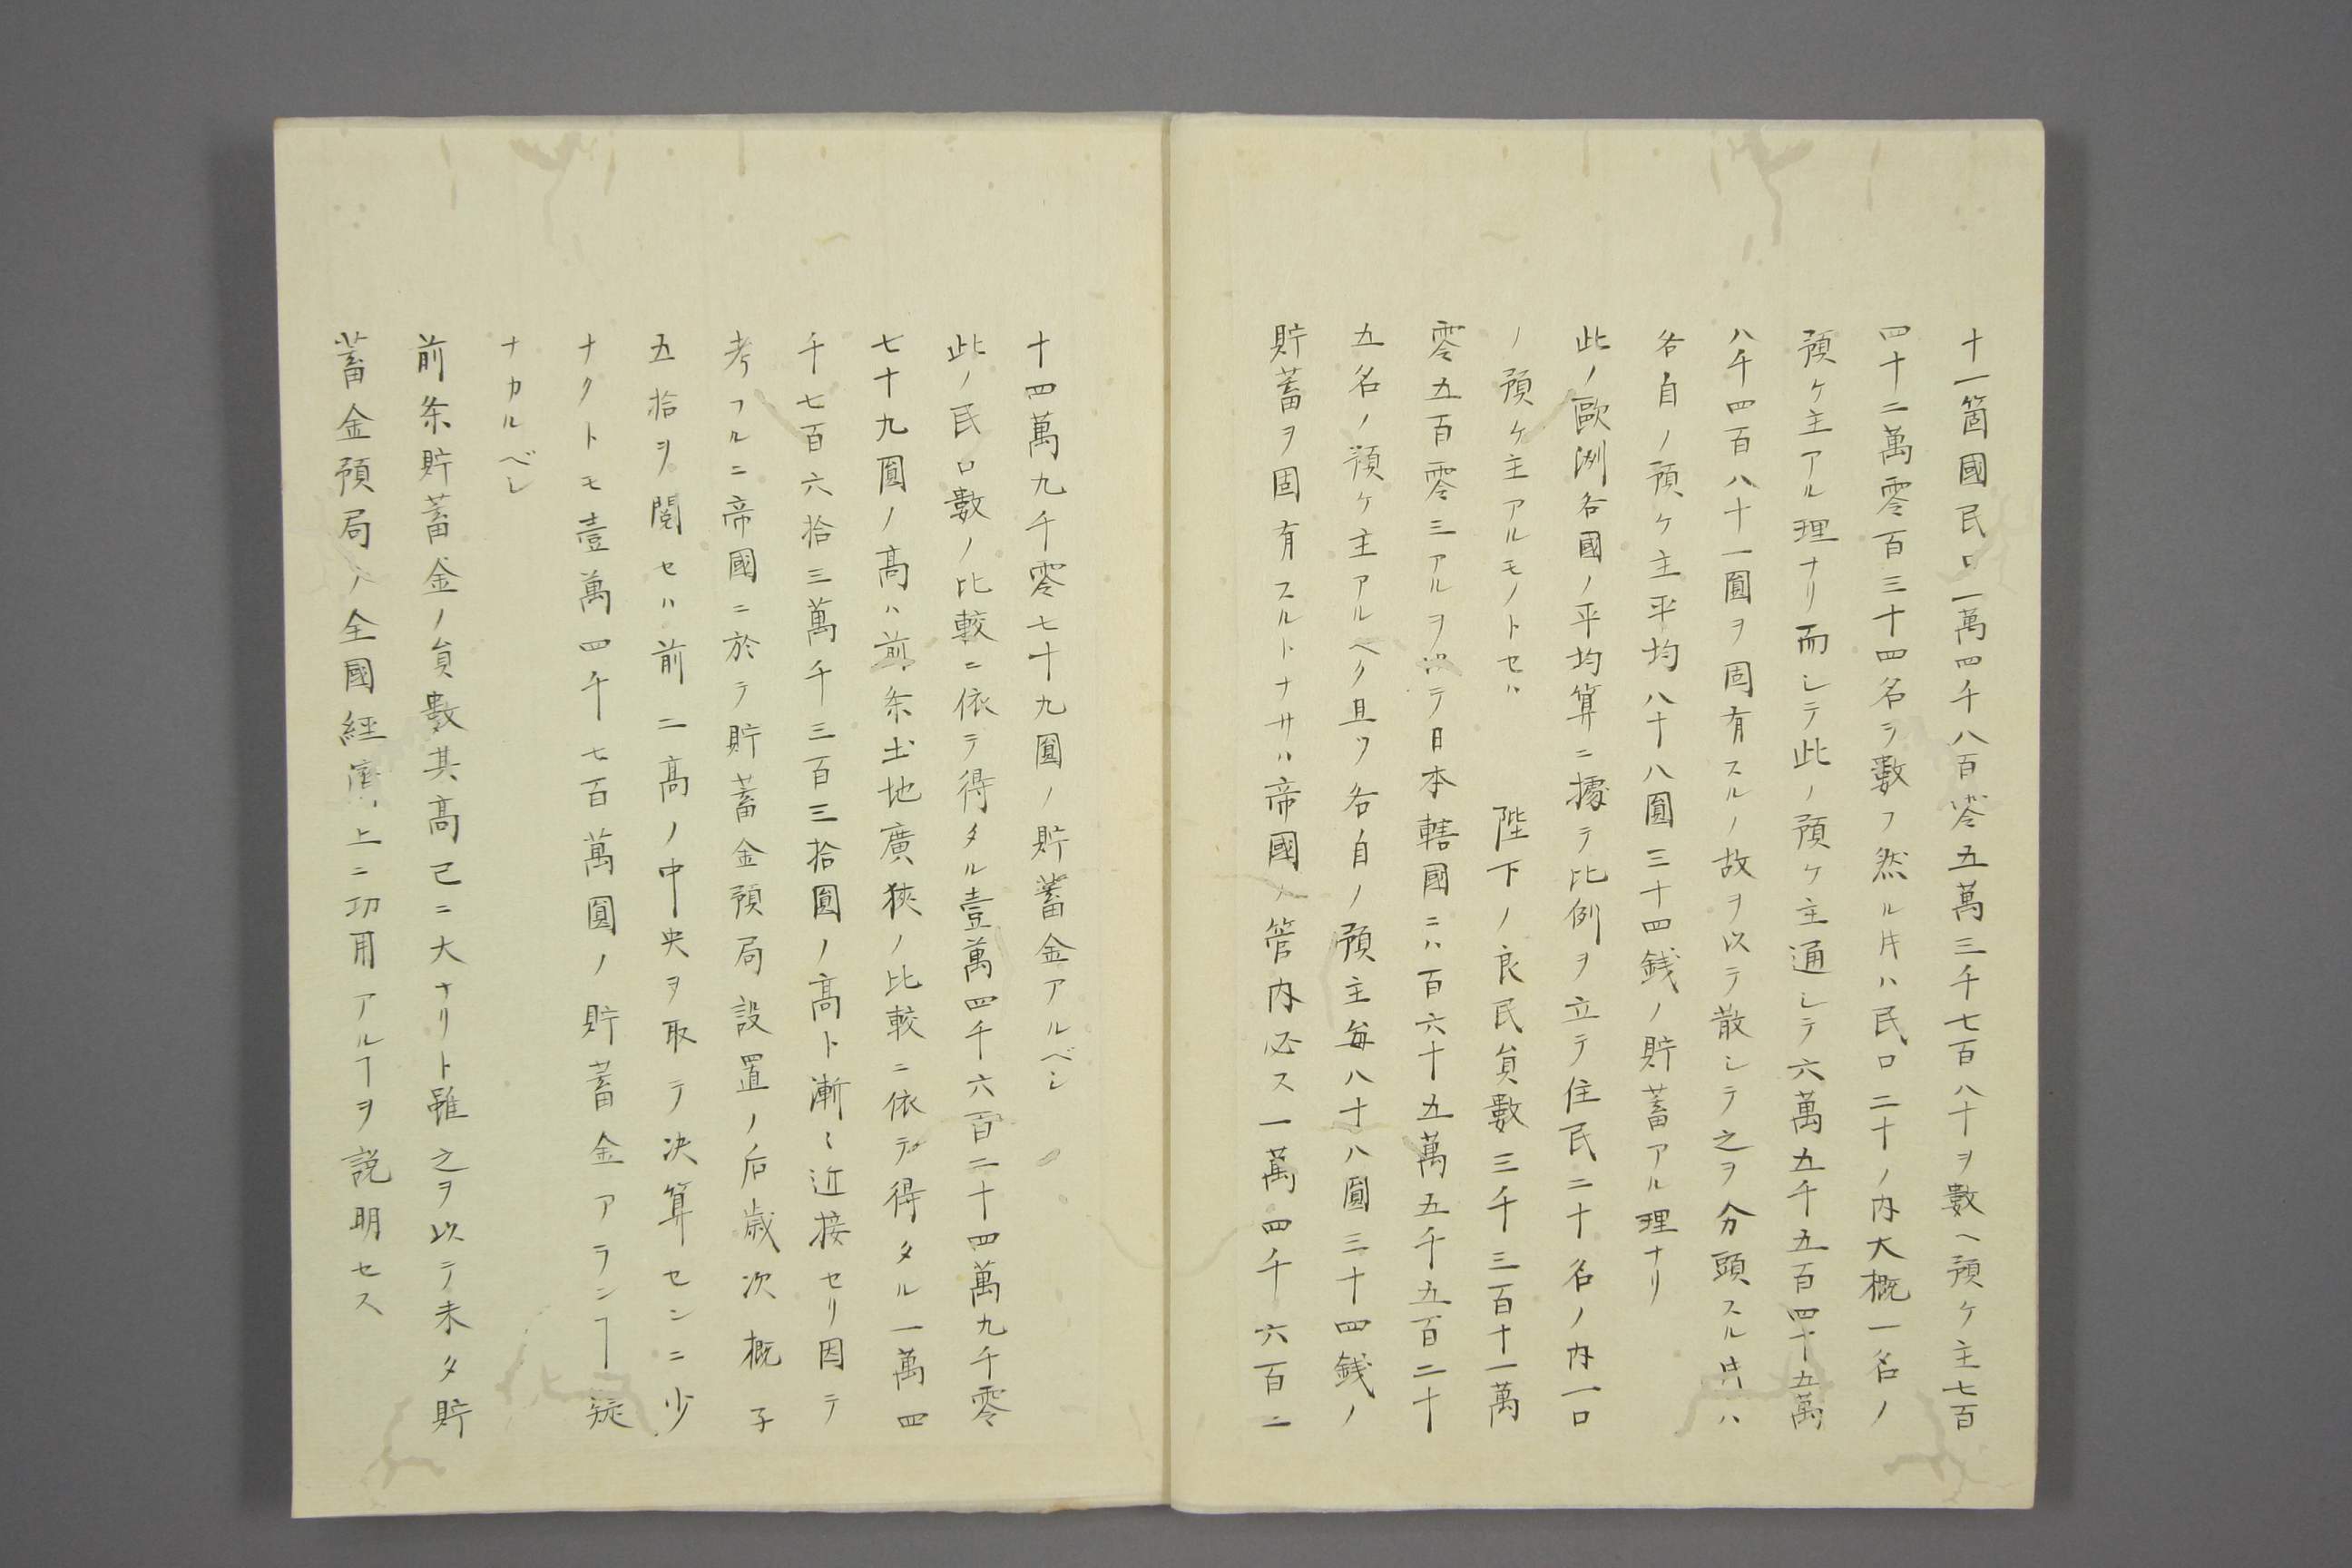 十一箇國民口一萬四千八百零五萬三千七百八十ヲ數ヘ預ケ主七百
四十二萬零百三十四名ヲ數フ然ル寸ハ民口二十ノ内大概一名ノ
預ケ主アル理ナリ而シテ此ノ預ケ主通シテ六萬五千五百四十五萬
八千四百八十一圓ヲ固有スルノ故ヲ以テ散シテ之ヲ分頭スル寸ハ
各自ノ預ケ主平均八十八圓三十四銭ノ貯蓄アル理ナリ
此ノ歐洲各國ノ平均算ニ據テ比例ヲ立テ住民二十名ノ内一口
ノ預ケ主アルモノトセハ 陛下ノ良民員數三千三百十一萬
零五百零三アルヲ以テ日本轄國ニハ百六十五萬五千五百二十
五名ノ預ケ主アルヘク且ツ各自ノ預主毎八十八圓三十四銭ノ
貯蓄ヲ固有スルトナサハ帝國ノ管内必ス一萬四千六百二
十四萬九千零七十九圓ノ貯蓄金アルベシ
此ノ民口數ノ比較ニ依テ得タル壹萬四千六百二十四萬九千零
七十九圓ノ髙ハ前条土地廣狹ノ比較ニ依テ得タル一萬四
千七百六拾三萬千三百三拾圓ノ髙ト漸〻近接セリ因テ
考フルニ帝國ニ於テ貯蓄金預局設置ノ后歳次概子
五拾ヲ閲セハ前二髙ノ中央ヲ取テ决算センニ少
ナクトモ壹萬四千七百萬圓ノ貯蓄金アランヿ疑
ナカルベシ
前条貯蓄金ノ員數其髙已ニ大ナリト雖之ヲ以テ未タ貯
蓄金預局ノ全國經濟上ニ功用アルヿヲ説明セス